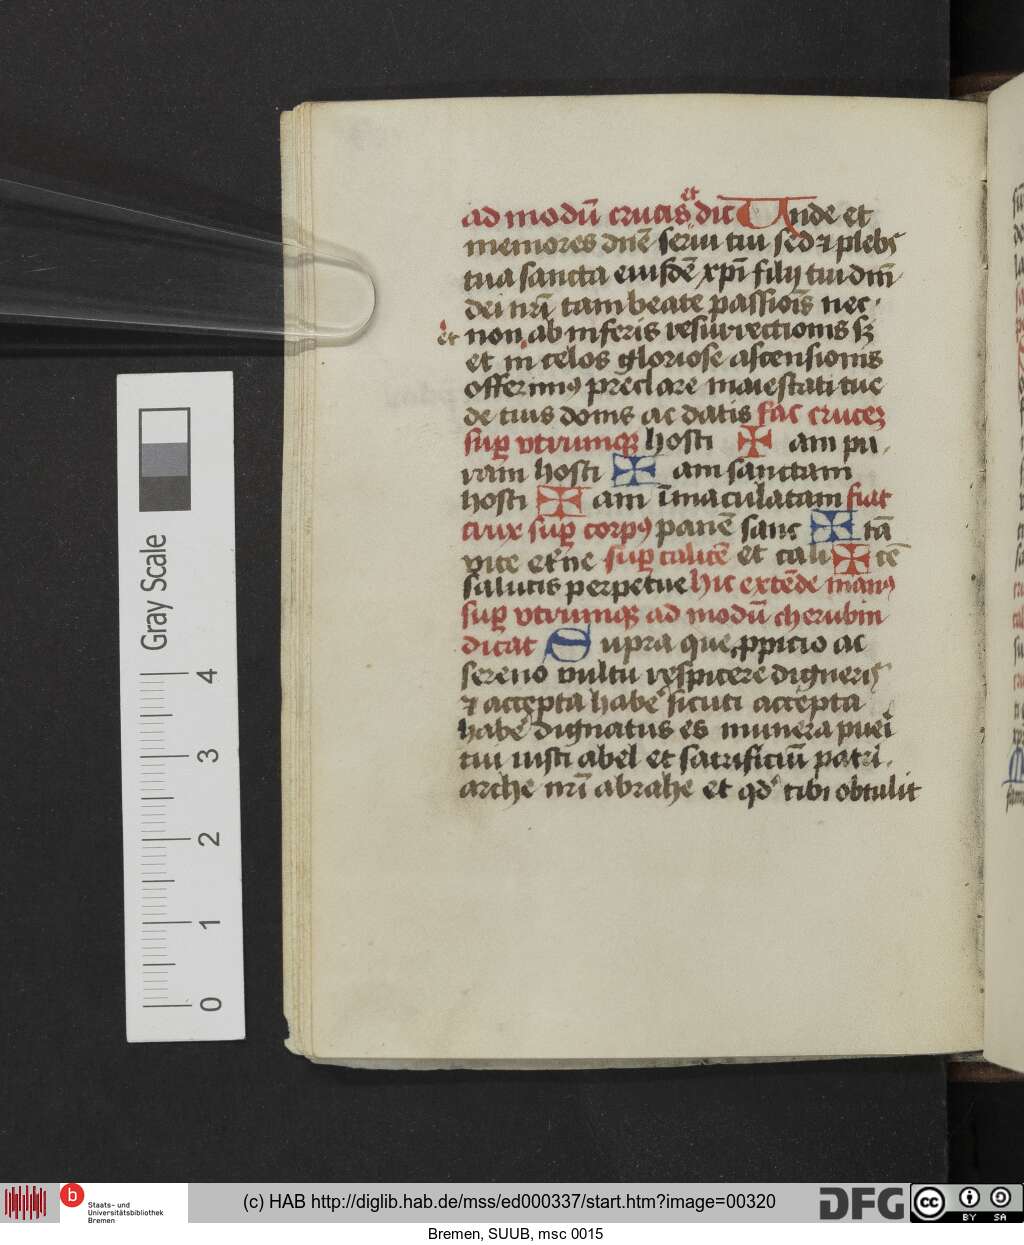 ad modū crucis et dic Unde et
memores dnē serui tui sed ⁊ plebs
tua sancta eiusdē xp̄i filij tui dn̄i
dei nr̄i tam beate passiōis nec
et non ab inferis resurrectionis sꝫ
et in celos gloriose ascensionis
offerimꝰ preclare maiestati tue
de tuis donis ac datis fac cruceꝫ
suꝑ vtrumqꝫ hosti ✠ am pu
ram hosti ✠ am sanctam
hosti ✠ am īmaculatam fiat
crux suꝑ corpꝰ panē sanc ✠ tū
vite eterne suꝑ calicē et cali ✠ cē
salutis perpetue hic extēde manꝰ
suꝑ vtrumqꝫ ad modū cherubin
dicat Supra que ꝓpicio ac
sereno vultu respicere digneris
⁊ accepta habe' sicuti accepta
habe' dignatus es munera pueī
tui iusti abel et sacrificiū patri
arche nr̄i abrahe et qd' tibi obtulit
Gray Scale
4
3
2
1
0
b Staats- und
Universitätsbibliothek
Bremen
(c) HAB http://diglib.hab.de/mss/ed000337/start.htm?image=00320
DFG
cc BY SA
Bremen, SUUB, msc 0015